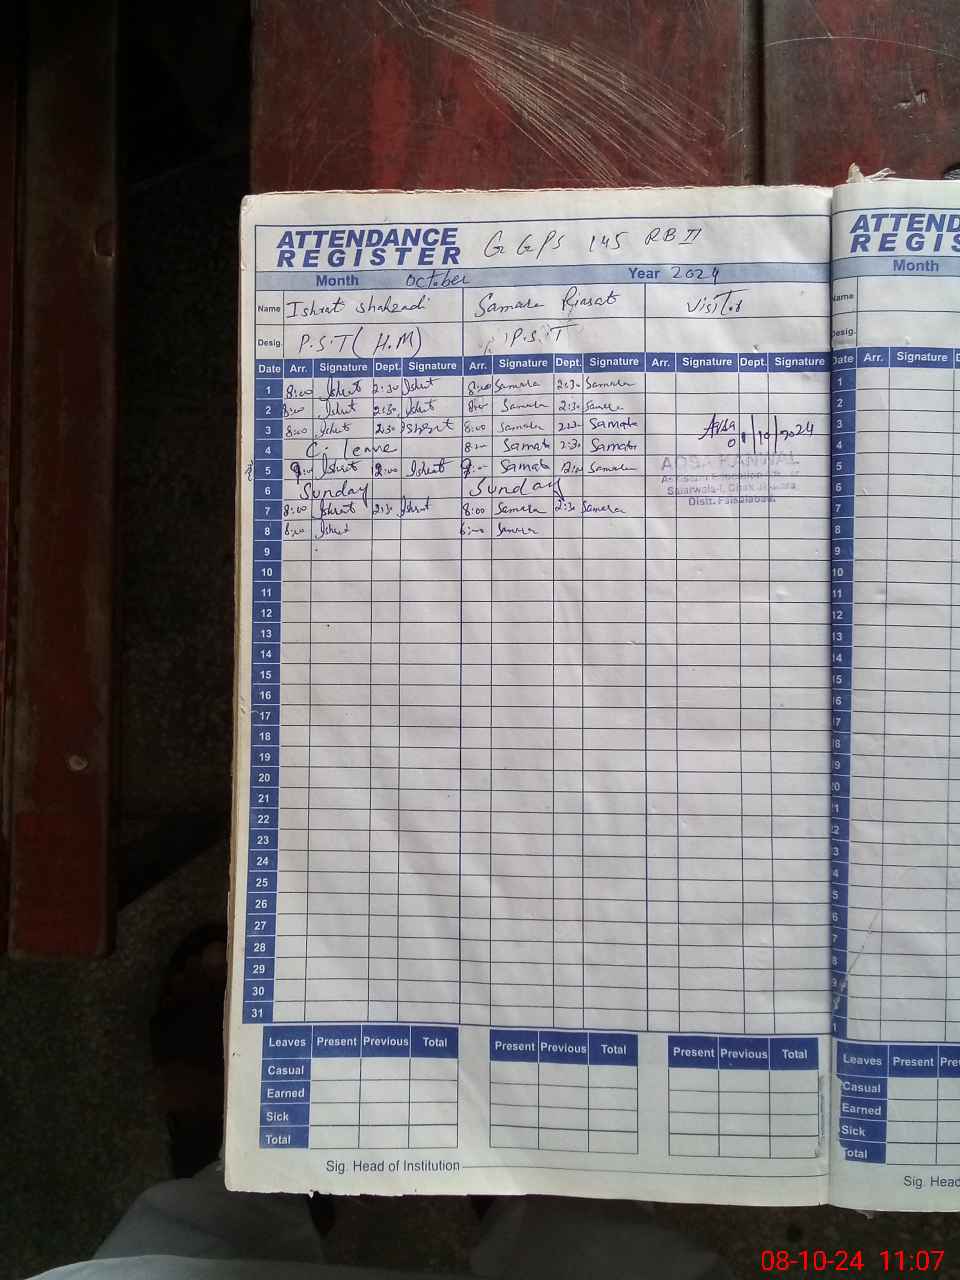 ATTENDANCE REGISTER G GPS 145 RB II
Month October Year 2024
Name Ishrat Shahzadi Samara Riasat Visitor
Desig. P.S.T (H.M) P.S.T
Date Arr. Signature Dept. Signature Arr. Signature Dept. Signature Arr. Signature Dept. Signature
1 8:00 Ishrat 2:30 Ishrat 8:00 Samara 2:30 Samara
2 8:00 Ishrat 2:30 Ishrat 8:00 Samara 2:30 Samara
3 8:00 Ishrat 2:30 Ishrat 8:00 Samara 2:30 Samara
4 C. Leave 8:00 Samara 2:30 Samara
5 Ishrat 2:00 Ishrat Samara Samara
6 Sunday Sunday
7 8:00 Ishrat 2:30 Ishrat 8:00 Samara 2:30 Samara
8 8:00 Ishrat 8:00 Samara
9
10
11
12
13
14
15
16
17
18
19
20
21
22
23
24
25
26
27
28
29
30
31
10 2024
KANWAL
Distt. Faisalabad
Leaves Present Previous Total Present Previous Total Present Previous Total
Casual
Earned
Sick
Total
Sig. Head of Institution
ATTEND
REGIS
Month
Name
Desig.
Date Arr. Signature
1
2
3
4
5
6
7
8
9
10
11
12
13
14
15
16
Leaves Present
Casual
Earned
Sick
Total
Sig. Head
08-10-24 11:07